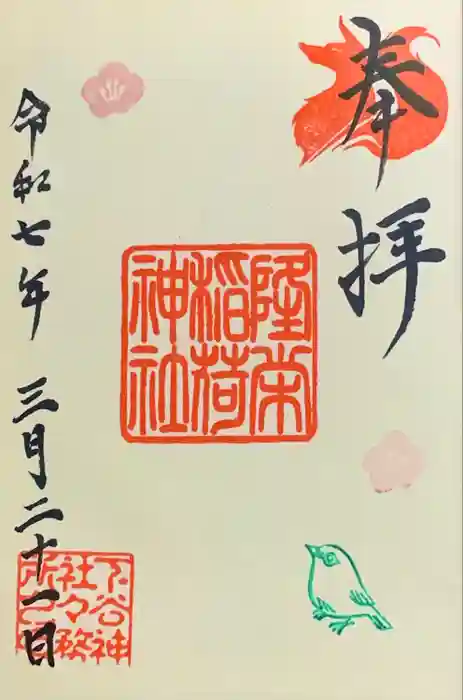 奉拝
隆栄
稲荷
神社
令和七年 三月二十一日
下谷神
社々務
所之印